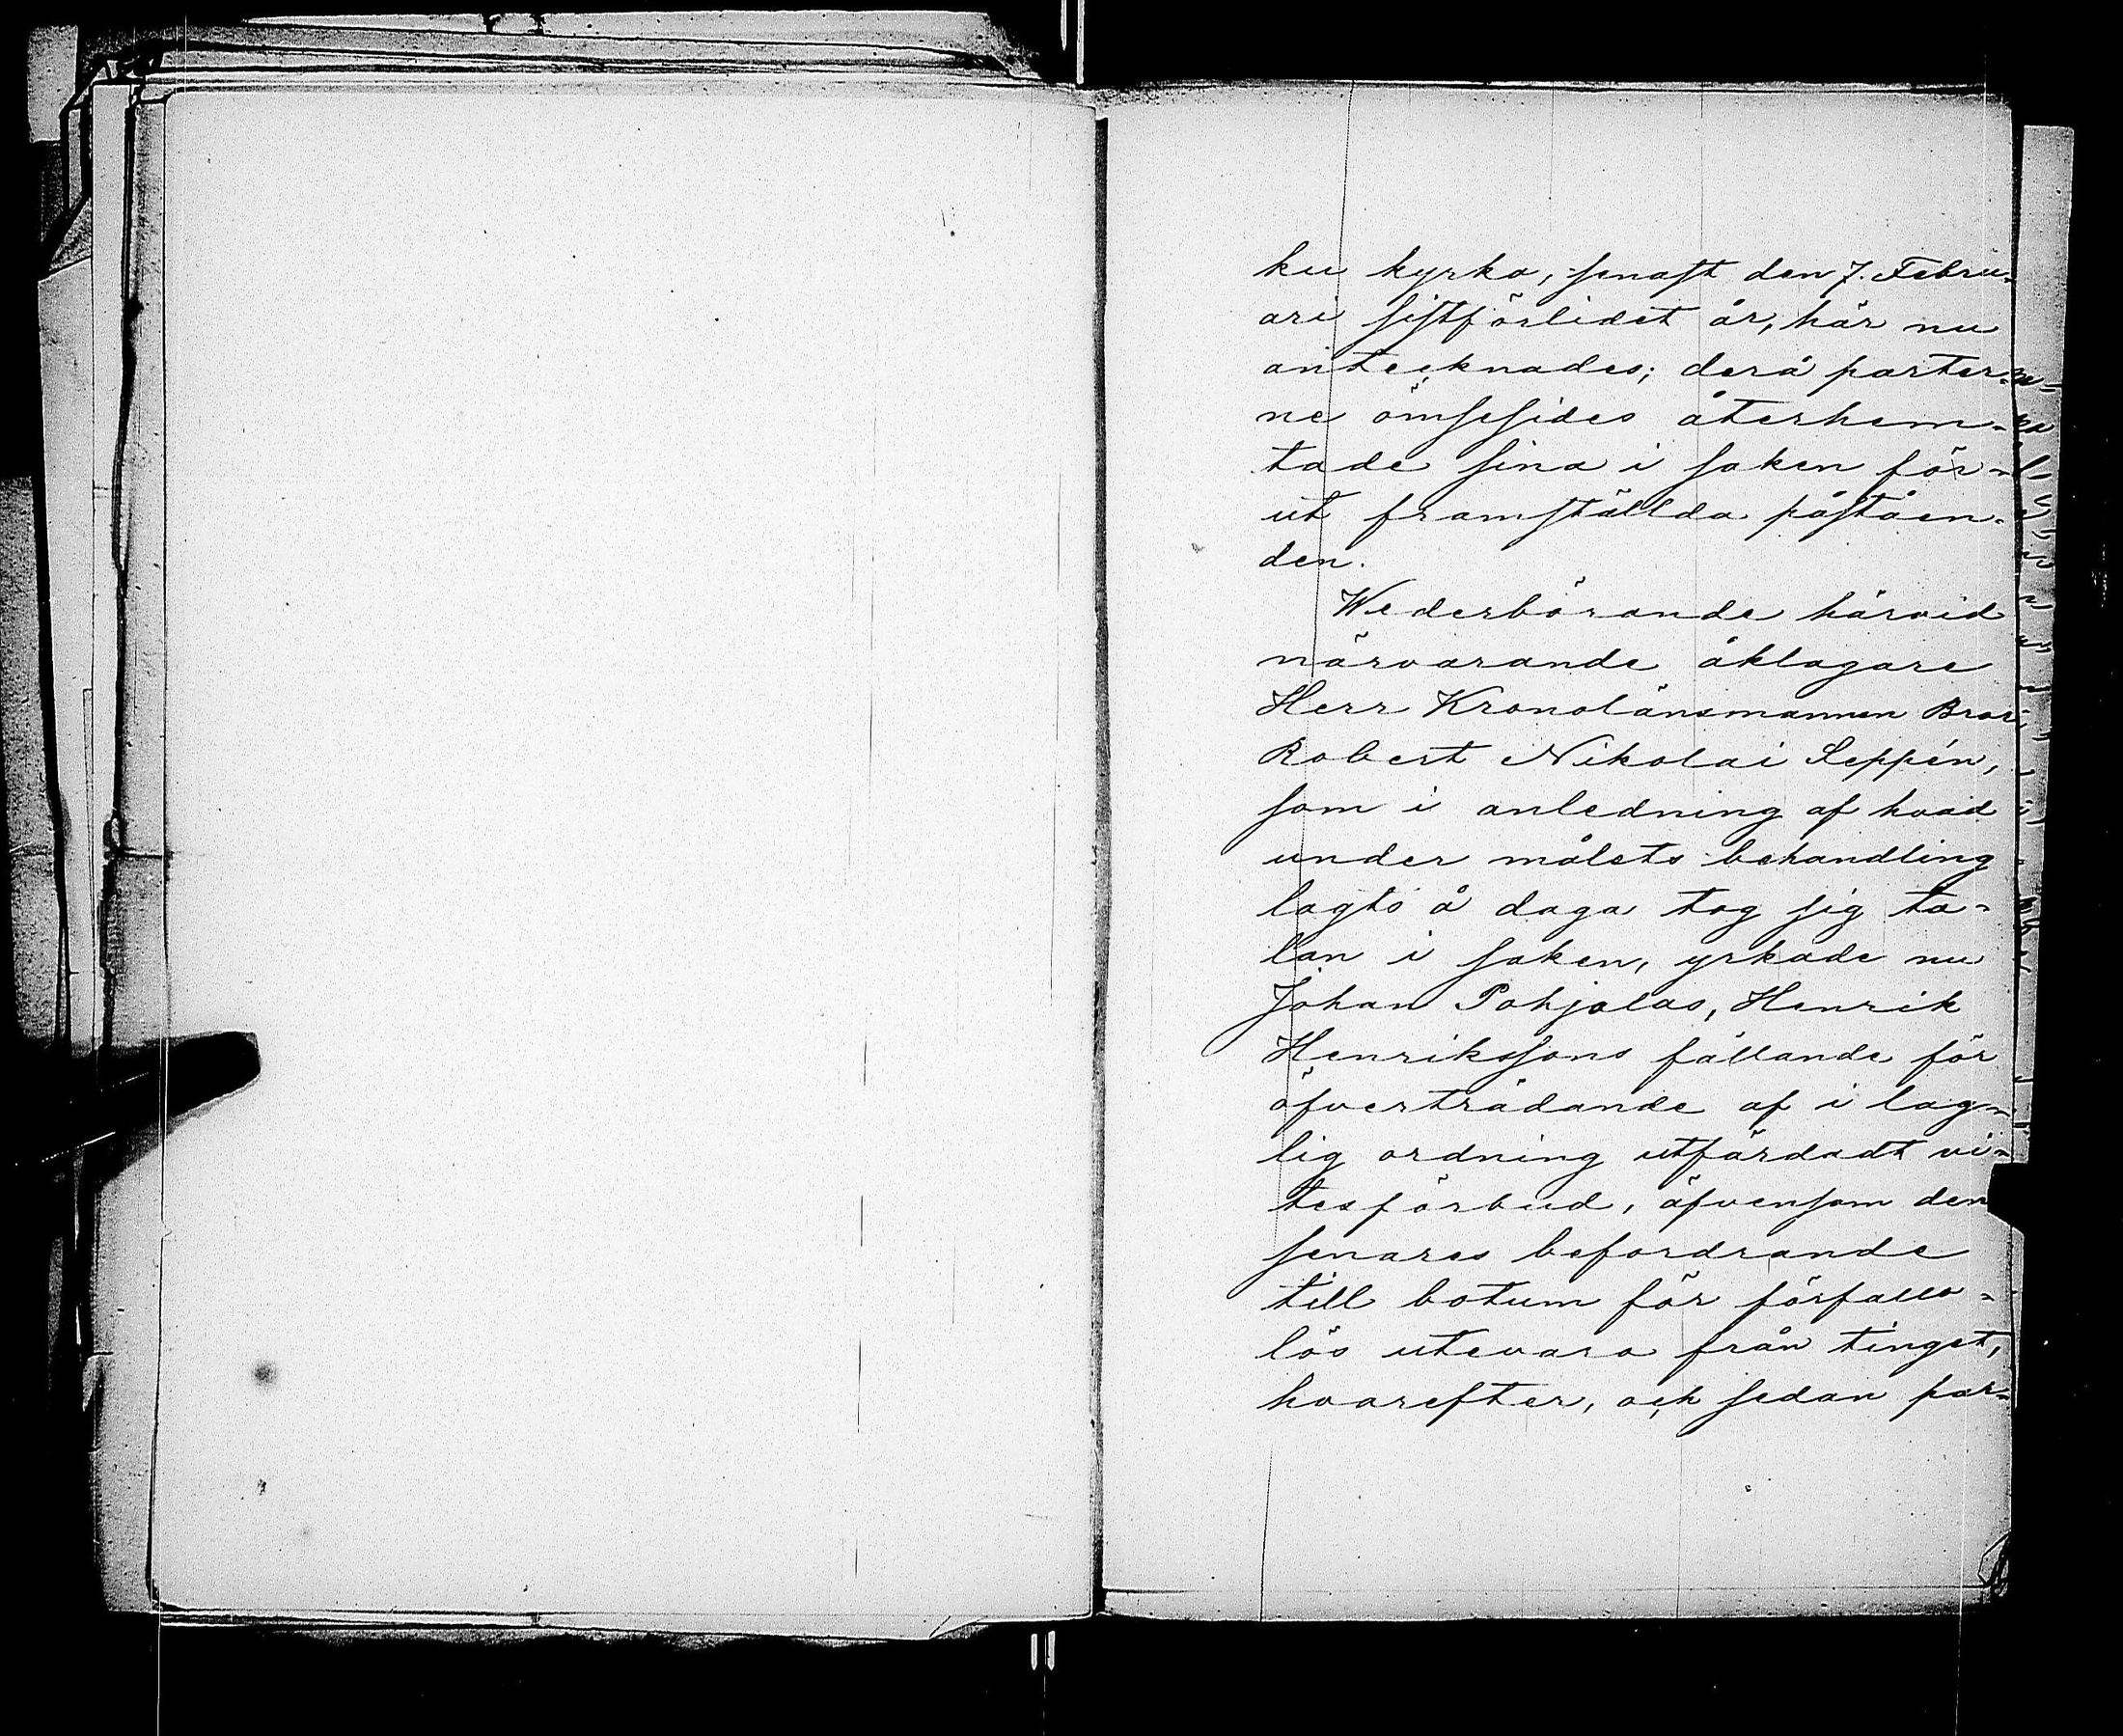 ku kyrka, senast den 7. Febru-
ari sistförlidet år, här nu
antecknades; derå parter-
ne ömsesides återhem-
tade sina i saken för-
ut framställda påståen-
den.
Wederbörande härvid
närvarande åklagare
Herr Kronolänsmannen
Robert Nikolai Seppén,
som i anledning af hvad
under målets behandling
lagts å daga tog sig ta-
lan i saken, yrkade nu
Johan Pohjalas, Henrik
Henrikssons fällande för
öfverträdande af i lag-
lig ordning utfärdadt vi-
tesförbud, äfvensom den
senares befordrande
till botum för förfallo-
lös utevaro från tinget,
hvarefter, och sedan par-